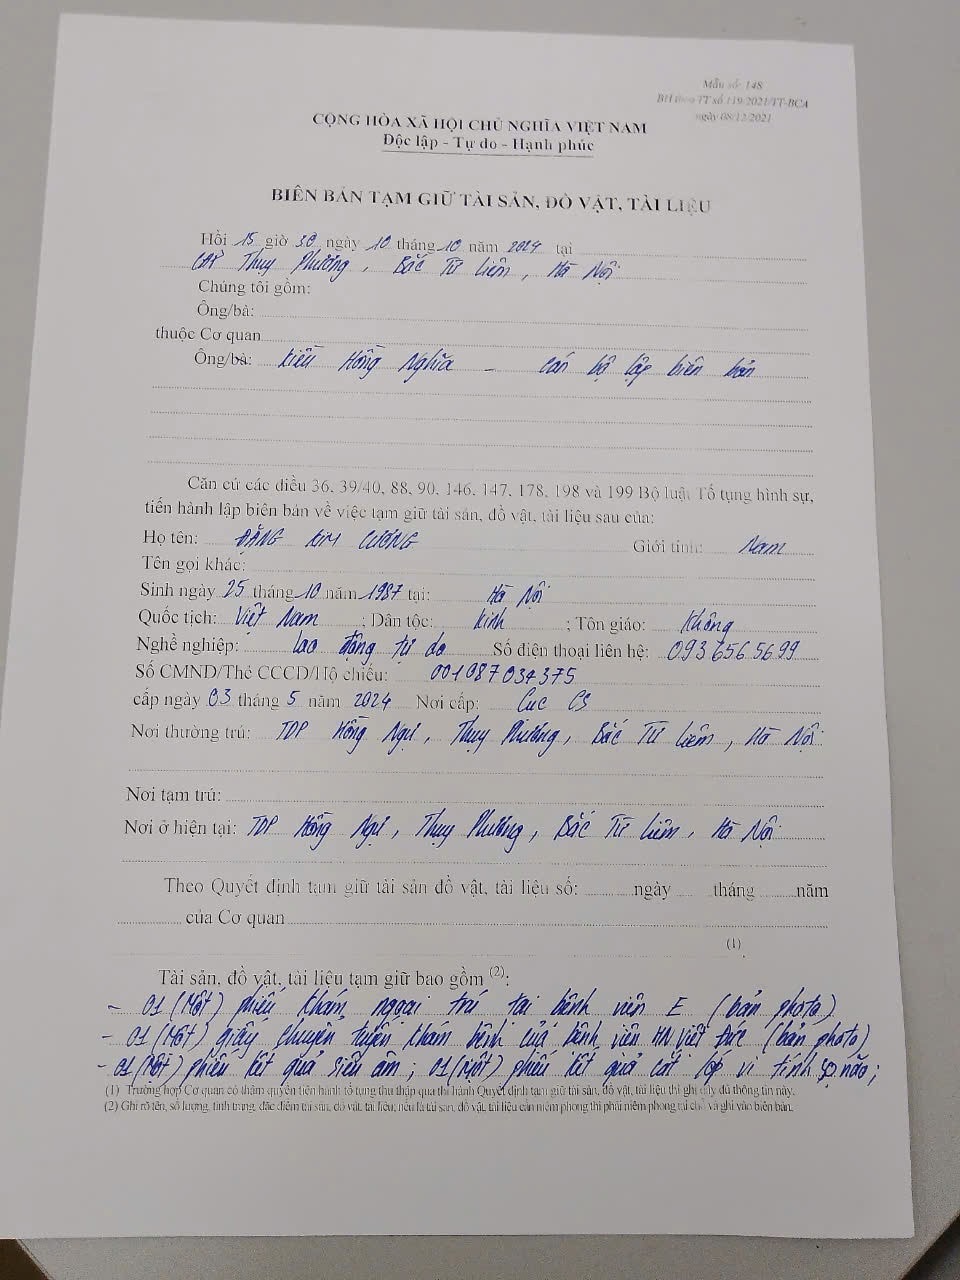 Mẫu số: 148
BH theo TT số 119/2021/TT-BCA
ngày 08/12/2021
CỘNG HÒA XÃ HỘI CHỦ NGHĨA VIỆT NAM
Độc lập - Tự do - Hạnh phúc
BIÊN BẢN TẠM GIỮ TÀI SẢN, ĐỒ VẬT, TÀI LIỆU
Hồi 15 giờ 30 ngày 10 tháng 10 năm 2024 tại
CAP Thụy Phương, Bắc Từ Liêm, Hà Nội
Chúng tôi gồm:
Ông/bà:
thuộc Cơ quan
Ông/bà: Kiều Hồng Nghĩa - Cán bộ lập biên bản
Căn cứ các điều 36, 39/40, 88, 90, 146, 147, 178, 198 và 199 Bộ luật Tố tụng hình sự,
tiến hành lập biên bản về việc tạm giữ tài sản, đồ vật, tài liệu sau của:
Họ tên: ĐẶNG KIM CƯƠNG Giới tính: Nam
Tên gọi khác:
Sinh ngày 25 tháng 10 năm 1987 tại: Hà Nội
Quốc tịch: Việt Nam ; Dân tộc: Kinh ; Tôn giáo: Không
Nghề nghiệp: Lao động tự do Số điện thoại liên hệ: 093 656 5699
Số CMND/Thẻ CCCD/Hộ chiếu: 001087034375
cấp ngày 03 tháng 5 năm 2024 Nơi cấp: Cục CS
Nơi thường trú: TDP Hồng Ngự, Thụy Phương, Bắc Từ Liêm, Hà Nội
Nơi tạm trú:
Nơi ở hiện tại: TDP Hồng Ngự, Thụy Phương, Bắc Từ Liêm, Hà Nội
Theo Quyết định tạm giữ tài sản đồ vật, tài liệu số: ngày tháng năm
của Cơ quan
(1)
Tài sản, đồ vật, tài liệu tạm giữ bao gồm (2):
- 01 (Một) phiếu khám ngoại trú tại bệnh viện E (bản photo)
- 01 (Một) giấy chuyển tuyến khám bệnh của bệnh viện HN Việt Đức (bản photo)
- 01 (Một) phiếu kết quả siêu âm; 01 (Một) phiếu kết quả cắt lớp vi tính sọ não;
(1) Trường hợp Cơ quan có thẩm quyền tiến hành tố tụng thu thập qua thi hành Quyết định tạm giữ tài sản, đồ vật, tài liệu thì ghi đầy đủ thông tin này.
(2) Ghi rõ tên, số lượng, tình trạng, đặc điểm tài sản, đồ vật, tài liệu; nếu là tài sản, đồ vật, tài liệu cần niêm phong thì phải niêm phong tại chỗ và ghi vào biên bản.